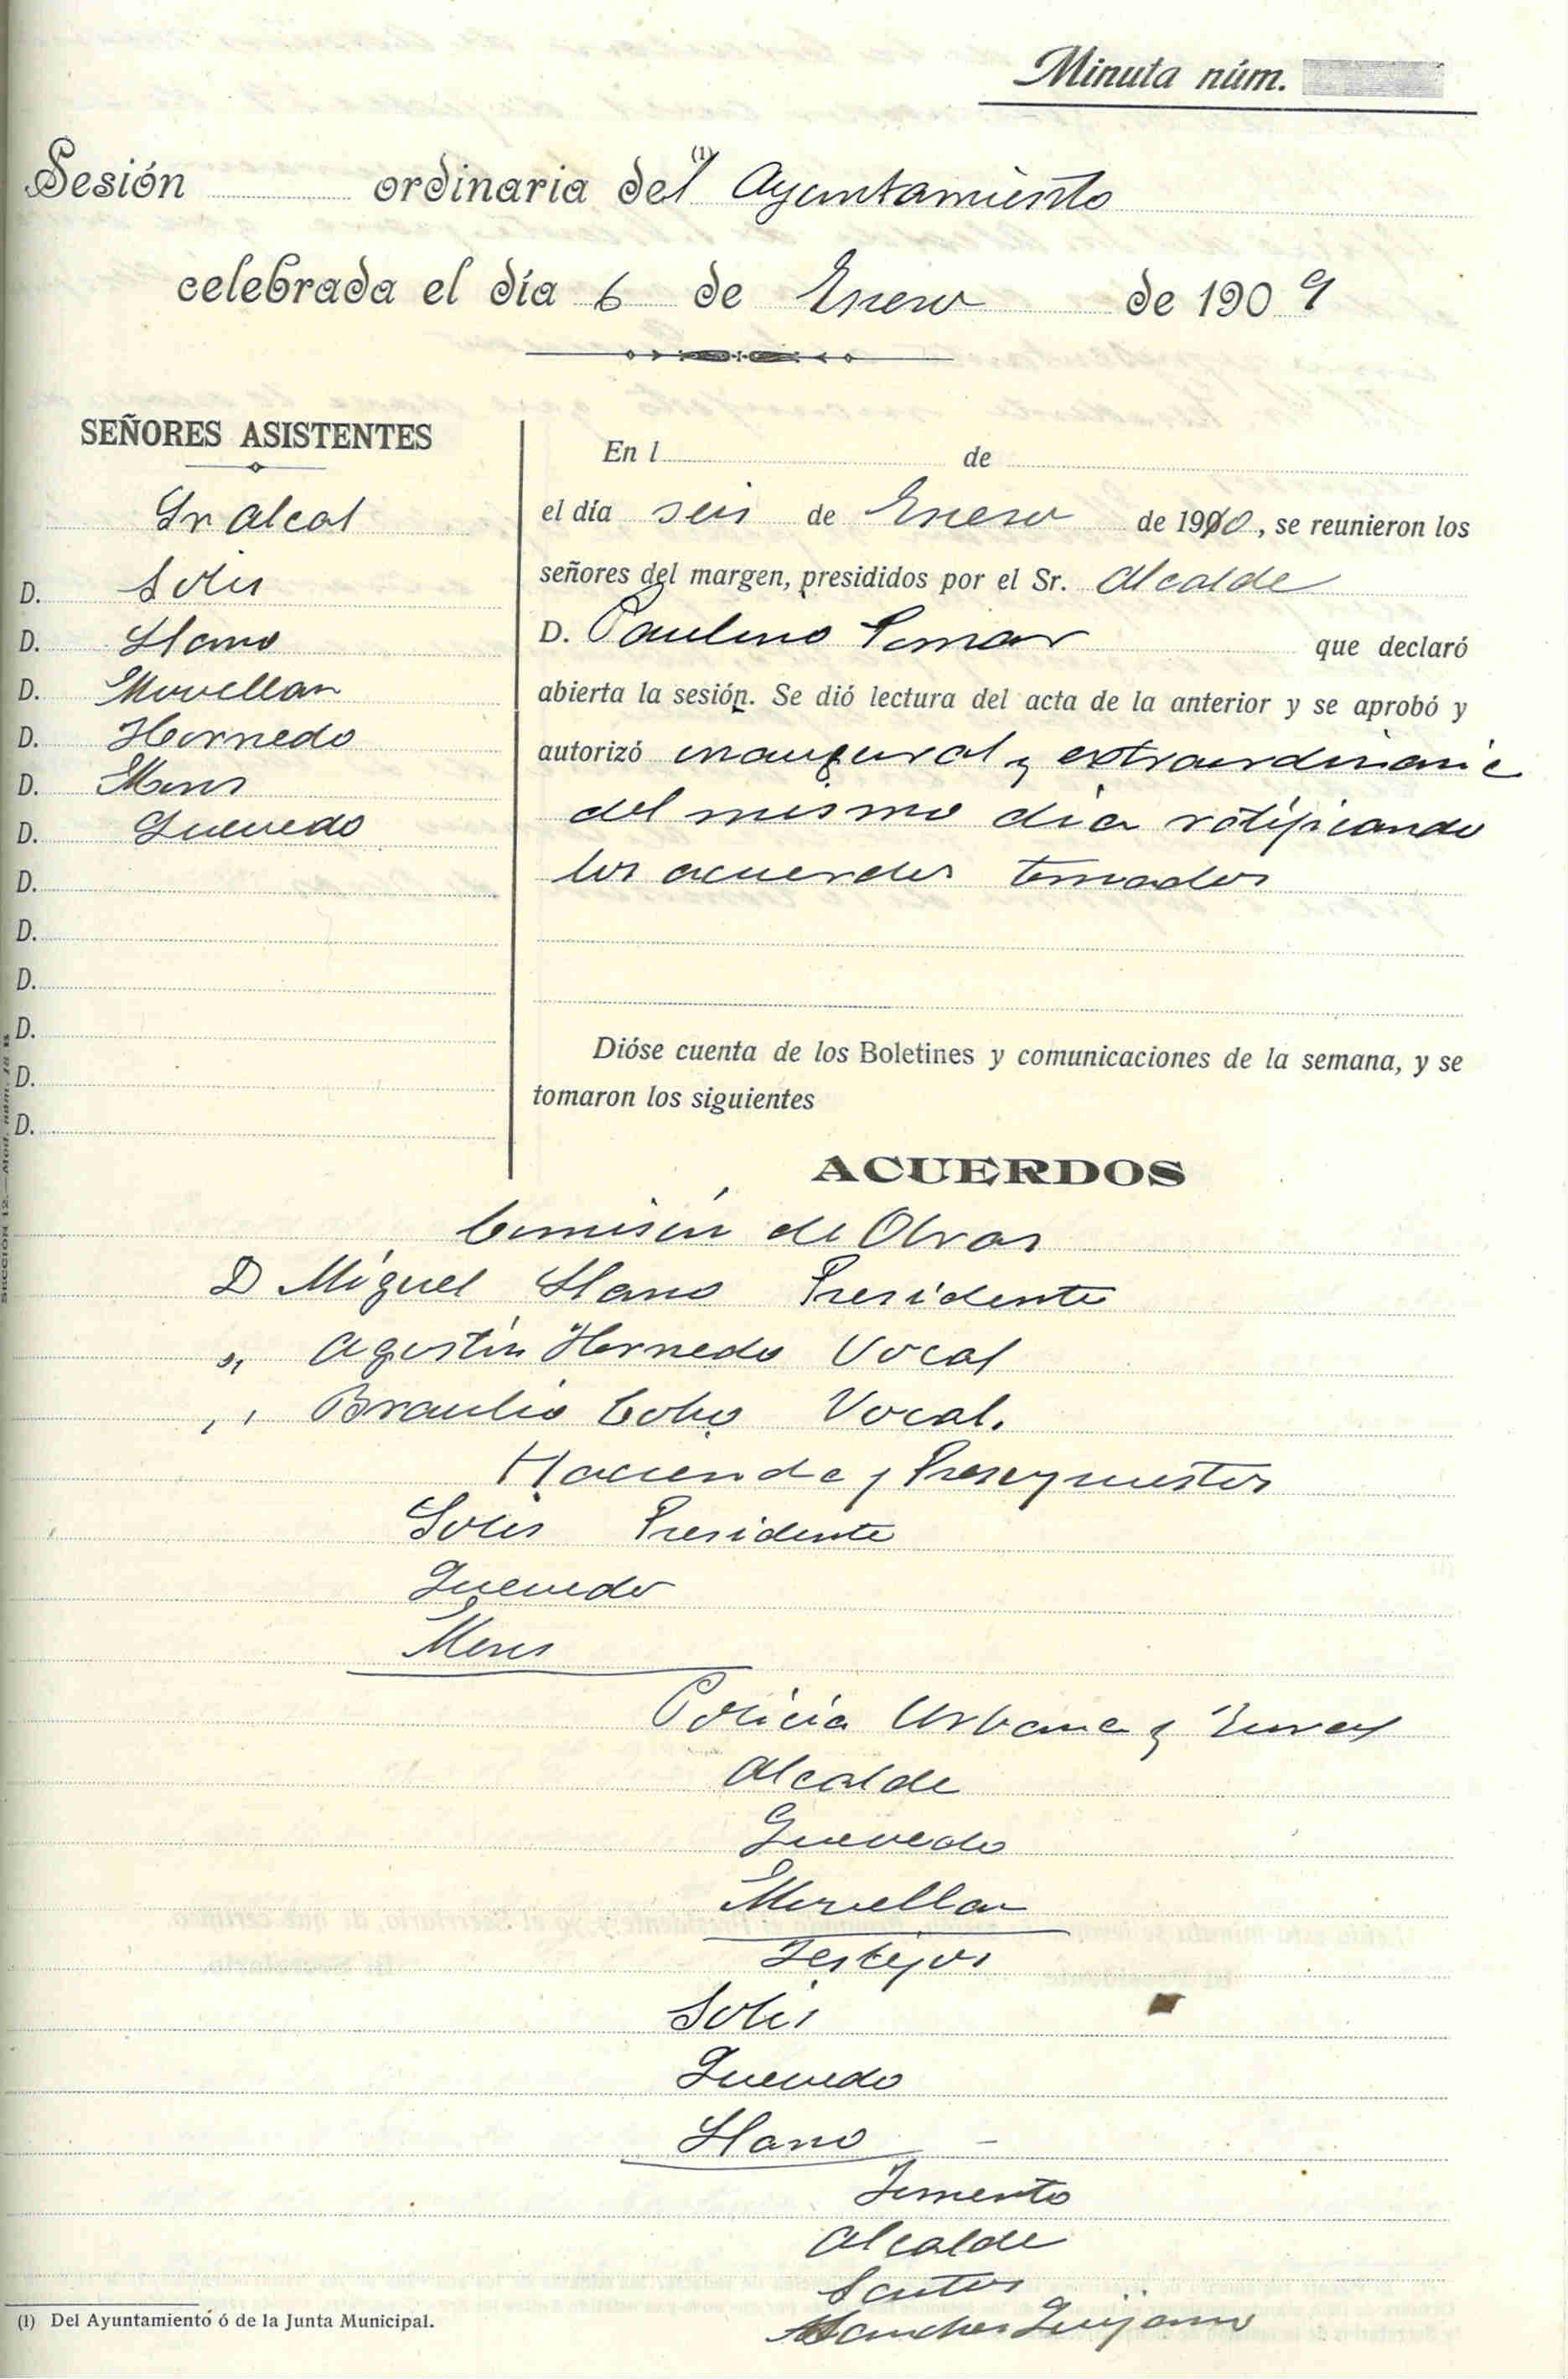 Minuta núm.
Sesión ordinaria del (1) Ayuntamiento
celebrada el día 6 de Enero de 1909
SEÑORES ASISTENTES
Sr Alcal
D. Solis
D. Llano
D. Movellan
D. Hornedo
D. Mons
D. Quevedo
D.
D.
D.
D.
D.
D.
En l de
el día seis de Enero de 1910, se reunieron los
señores del margen, presididos por el Sr. Alcalde
D. Paulino que declaró
abierta la sesión. Se dió lectura del acta de la anterior y se aprobó y
autorizó inaugural y extraordinaria
del mismo dia ratificando
los acuerdos tomados
Dióse cuenta de los Boletines y comunicaciones de la semana, y se
tomaron los siguientes
ACUERDOS
Comisión de Obras
D Miguel Llano Presidente
" Agustín Hornedo Vocal
" Braulio Cobo Vocal.
Hacienda y Presupuestos
Solis Presidente
Quevedo
Mons
Policía Urbana y Rural
Alcalde
Quevedo
Movellan
Festejos
Solis
Quevedo
Llano
Fomento
Alcalde
Santos
Sanchez Quijano
(1) Del Ayuntamiento ó de la Junta Municipal.
SECCIÓN 12.—Mod. núm. 18 B